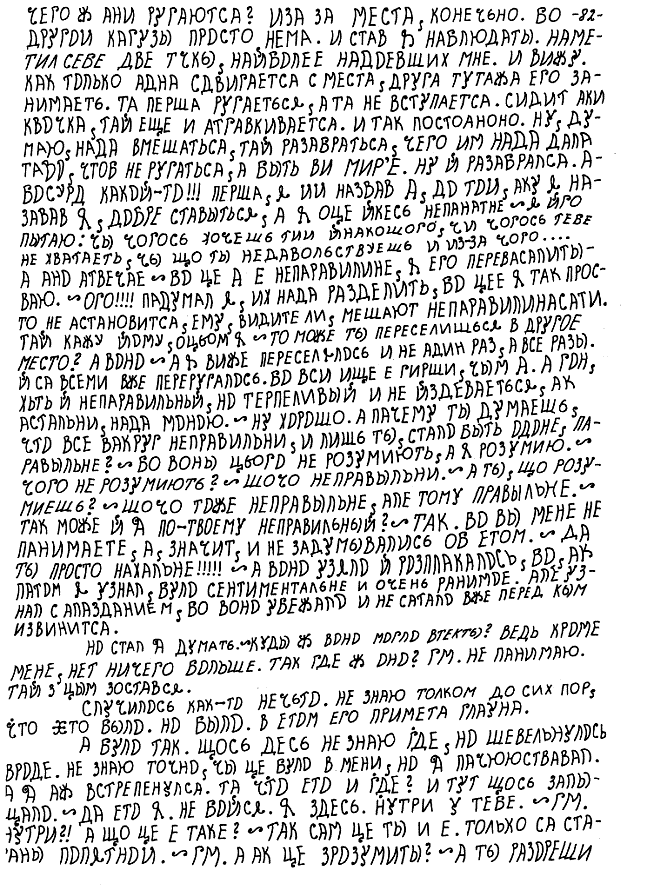 ЧЕГО Ж АНИ РУГАЮТСА? ИЗА ЗА МЕСТА, КОНЕЧЬНО. ВО -82-
ДРУГОЙ КАГУЗЫ ПРОСТО НЕМА. И СТАВ Я НАБЛЮДАТЫ. НАМЕ-
ТИЛ СЕБЕ ДВЕ ТЧКЫ, НАЙБОЛЕЕ НАДОЕВШИХ МНЕ. И ВИЖУ.
КАК ТОЛЬКО АДНА СДВИГАЕТСА С МЕСТА, ДРУГА ТУТАЖА ЕГО ЗА-
НИМАЕТЬ. ТА ПЕРША РУГАЕТЬСЯ, А ТА НЕ ВСТУПАЕТСА. СИДИТ АКИ
КВОЧКА, ТАЙ ЕЩЕ И АТРАВКИВАЕТСА. И ТАК ПОСТОАНОНО. НУ, ДУ-
МАЮ, НАДА ВМЕШАТЬСА, ТАЙ РАЗАВРАТЬСА, ЧЕГО ИМ НАДА ДАЛА
ТАВО, ЧТОБ НЕ РУГАТЬСА, А БЫТЬ ВИ МИР'Е. НУ Й РАЗАБРАЛСА. А-
БОСУРД КАКОЙ-ТО!!! ПЕРША, Я ИИ НАЗВАВ А, ДО ТОИ, АКУ Я НА-
ЗАВАВ Я, ДОБРЕ СТАВЫТЬСЯ, А Я ОЦЕ ЙКЕСЬ НЕПАНАТНЕ ~ Я ЙГО
ПЫТАЮ: ЧЫ ЧОГОСЬ ХОЧЕШЬ ТИИ ЙНАКОШОГО, ЧИ ЧОГОСЬ ТЕБЕ
НЕ ХВАТАЕТЬ, ЧЫ ЩО ТЫ НЕДАВОЛЬСТВУЕШЬ И ИЗ-ЗА ЧОГО....
А АНО АТВЕЧАЕ ~ ВО ЦЕ А Е НЕПАРАВИЛИНЕ, Я ЕГО ПЕРЕВАСАПИТЫ-
ВАЮ. ~ ОГО!!!! ПАДУМАЛ Я, ИХ НАДА РАЗДЕЛИТЬ, ВО ЦЕЕ Я ТАК ПРОС-
ТО НЕ АСТАНОВИТСА, ЕМУ, ВИДИТЕ ЛИ, МЕШАЮТ НЕПАРАВИЛИНАСАТИ.
ТАЙ КАЖУ ЙОМУ, ОЦЬОМ Я ~ ТО МОЖЕ ТЫ ПЕРЕСЕЛИШЬСЯ В ДРУГОЕ
МЕСТО? А ВОНО ~ А Я ВИЖЕ ПЕРЕСЕЛЯЛОСЬ И НЕ АДИН РАЗ, А ВСЕ РАЗЫ.
Й СА ВСЕМИ ВЖЕ ПЕРЕРУГАЛОСЬ. ВО ВСИ ИЩЕ Е ГИРШИ, ЧЫМ А. А ГОН,
ХЬТЬ Й НЕПАРАВИЛЬНЫЙ, НО ТЕРПЕЛИВЫЙ И НЕ ЙЗДЕВАЕТЬСЯ, АК
АСТАЛЬНИ, НАДА МОНОЮ. ~ НУ ХОРОШО. А ПАЧЕМУ ТЫ ДУМАЕШЬ,
ЧТО ВСЕ ВАКРУГ НЕПРАВИЛЬНИ, И ЛИШЬ ТЫ, СТАЛО БЫТЬ ОДОНЕ, ПА-
РАВЫЛЬНЕ? ~ ВО ВОНЫ ЦЬОГО НЕ РОЗУМИЮТЬ, А Я РОЗУМИЮ. ~
ЧОГО НЕ РОЗУМИЮТЬ? ~ ШОЧО НЕПРАВЫЛЬНИ. ~ А ТЫ, ЩО РОЗУ-
МИЕШЬ? ~ ШОЧО ТОЖЕ НЕПРАВЫЛЬНЕ, АЛЕ ТОМУ ПРАВЫЛЬНЕ. ~
ТАК МОЖЕ Й Я ПО-ТВОЕМУ НЕПРАВИЛЬНЫЙ? ~ ТАК. ВО ВЫ МЕНЕ НЕ
ПАНИМАЕТЕ, А, ЗНАЧИТ, И НЕ ЗАДУМЫВАЛИСЬ ОБ ЕТОМ. ~ ДА
ТЫ ПРОСТО НАХАЛЬНЕ!!!!! ~ А ВОНО УЗЯЛО Й РОЗПЛАКАЛОСЬ, ВО, АК
ПАТОМ Я УЗНАЛ, БУЛО СЕНТИМЕНТАЛЬНЕ И ОЧЕНЬ РАНИМОЕ. АЛЕ УЗ-
НАЛ С АПАЗДАНИЕМ, БО ВОНО УБЕЖАЛО И НЕ САТАЛО ВЖЕ ПЕРЕД КЫМ
ИЗВИНИТСА.
НО СТАЛ Я ДУМАТЬ. ~ КУДЫ Ж ВОНО МОГЛО ВТЕКТЫ? ВЕДЬ КРОМЕ
МЕНЕ, НЕТ НИЧЕГО БОЛЬШЕ. ТАК ГДЕ Ж ОНО? ГМ. НЕ ПАНИМАЮ.
ТАЙ З ЦЫМ ЗОСТАВСЯ.
СЛУЧИЛОСЬ КАК-ТО НЕЧЬТО. НЕ ЗНАЮ ТОЛКОМ ДО СИХ ПОР,
ЧТО ЭТО БЫЛО. НО БЫЛО. В ЕТОМ ЕГО ПРИМЕТА ГЛАУНА.
А БУЛО ТАК. ЩОСЬ ДЕСЬ НЕ ЗНАЮ ГДЕ, НО ШЕВЕЛЬНУЛОСЬ
ВРОДЕ. НЕ ЗНАЮ ТОЧНО, ЧЫ ЦЕ БУЛО В МЕНИ, НО Я ПАЧЮЮСТВАВАЛ.
А Я АЖ ВСТРЕПЕНУЛСА. ТА ЧТО ЕТО И ГДЕ? И ТУТ ЩОСЬ ЗАПЫ-
ЩАЛО. ~ ДА ЕТО Я. НЕ БОЙСЯ. Я ЗДЕСЬ. НУТРИ У ТЕБЕ. ~ ГМ.
НУТРИ?! А ЩО ЦЕ Е ТАКЕ? ~ ТАК САМ ЦЕ ТЫ И Е. ТОЛЬХО СА СТА-
АНЫ ПОЛЯТНОЙ. ~ ГМ. А АК ЦЕ ЗРОЗУМИТЫ? ~ А ТЫ РАЗДРЕШИ